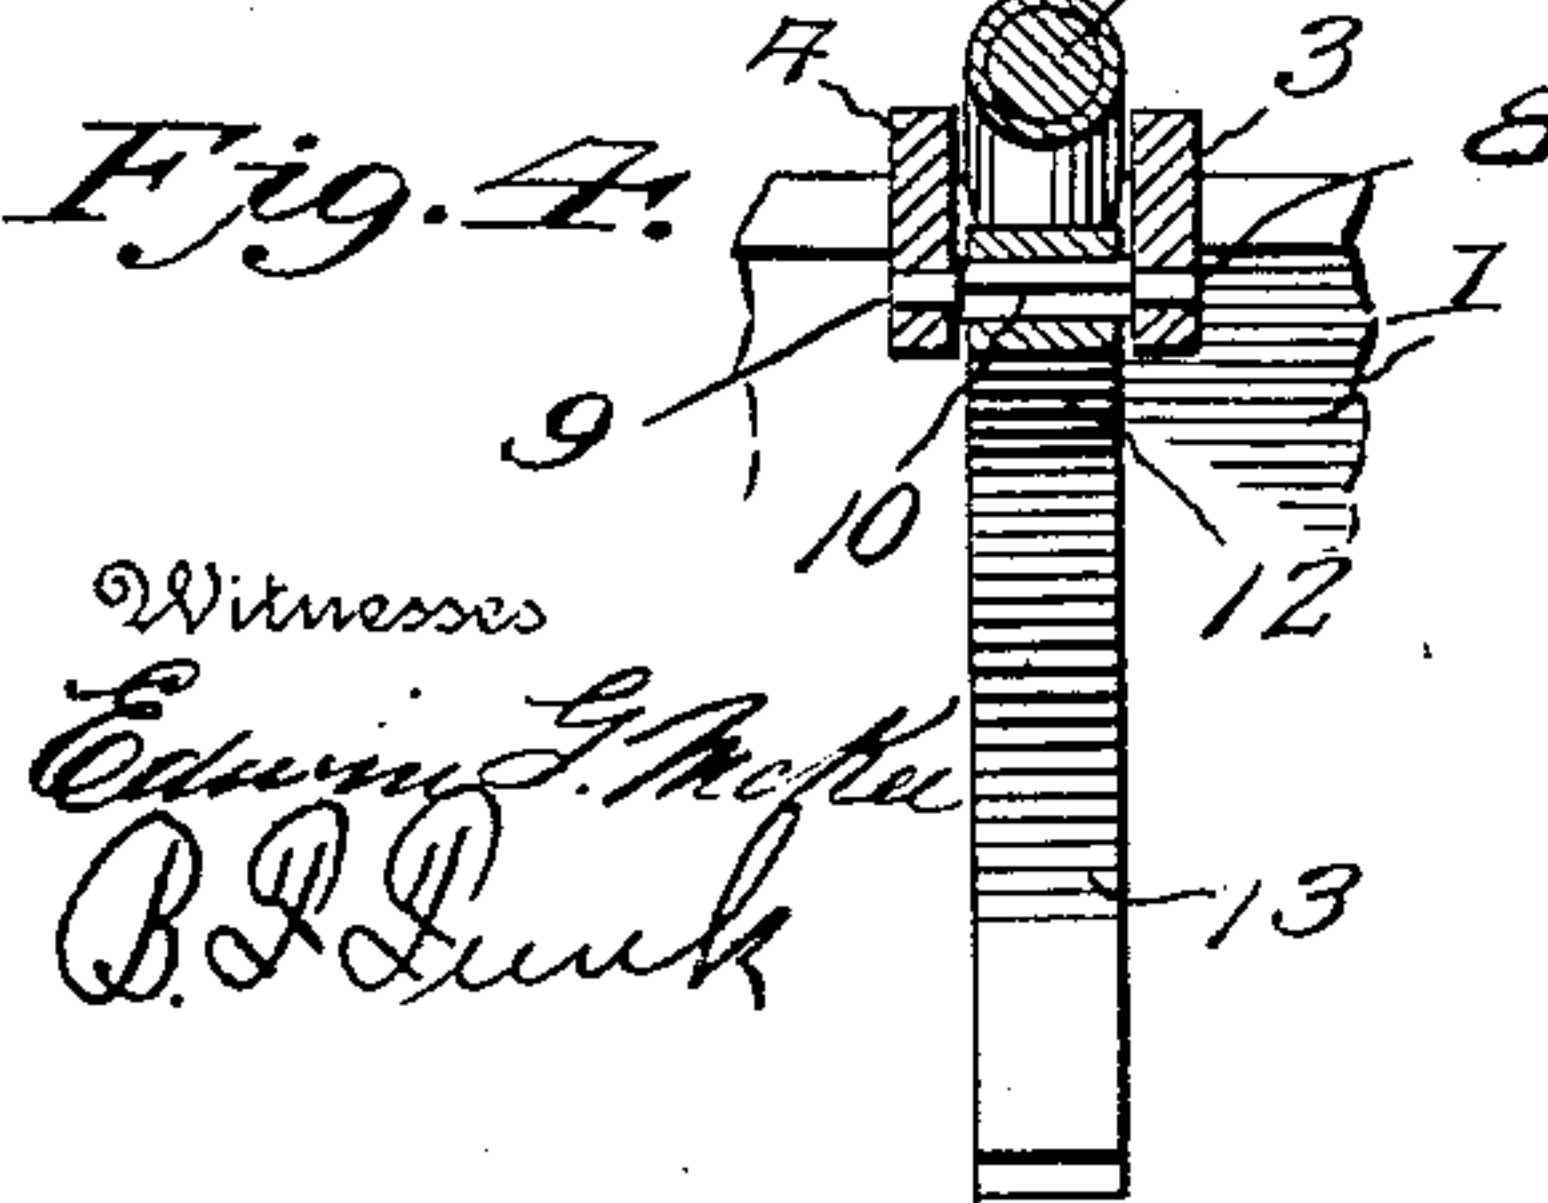 4
3
Fig. 4.
8
1
9
10
12
Witnesses
Edwin G. McKee
B. F. Funk
13